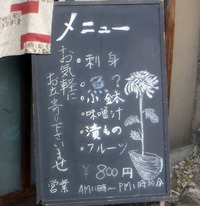 メニュー
お気軽に
お立寄り下さいませ
・刺身
・魚?
・小鉢
・味噌汁
・漬もの
・フルーツ
¥800円
営業 AM11時〜PM1時30分